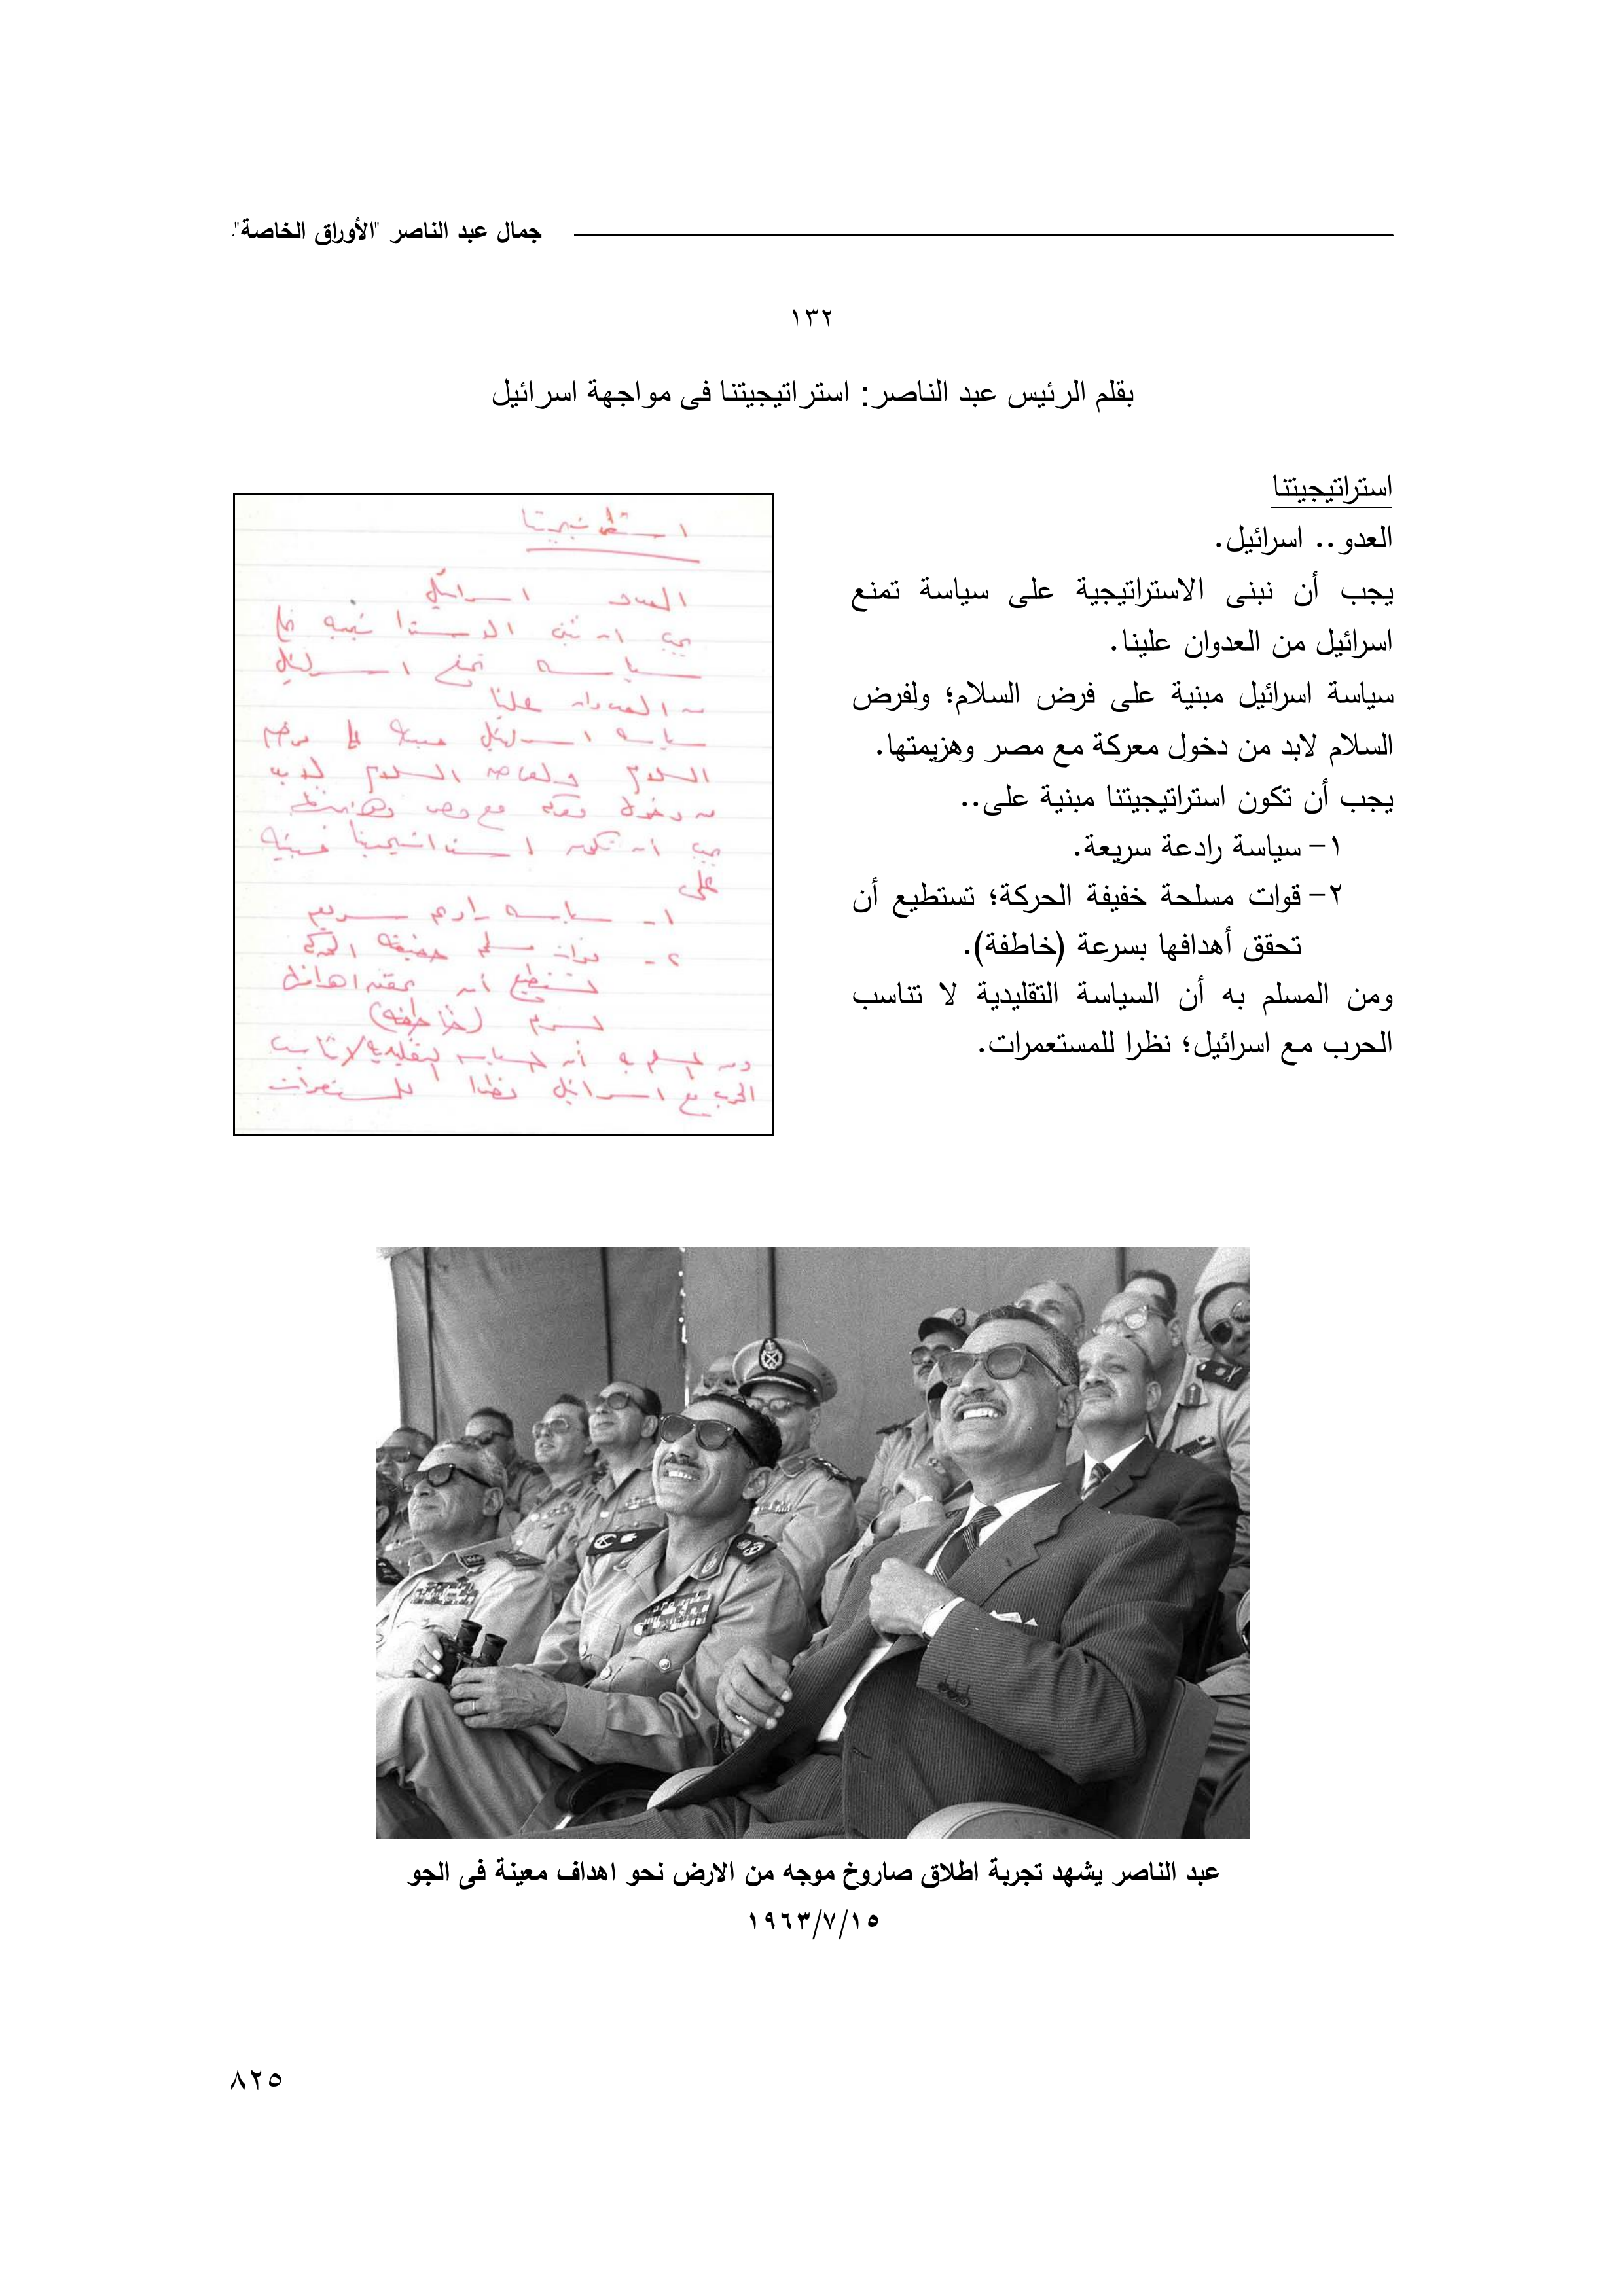 جمال عبد الناصر "الأوراق الخاصة".
١٣٢
بقلم الرئيس عبد الناصر: استراتيجيتنا فى مواجهة اسرائيل
استراتيجيتنا
العدو.. اسرائيل.
يجب أن نبنى الاستراتيجية على سياسة تمنع
اسرائيل من العدوان علينا.
سياسة اسرائيل مبنية على فرض السلام؛ ولفرض
السلام لابد من دخول معركة مع مصر وهزيمتها.
يجب أن تكون استراتيجيتنا مبنية على..
١- سياسة رادعة سريعة.
٢- قوات مسلحة خفيفة الحركة؛ تستطيع أن
تحقق أهدافها بسرعة (خاطفة).
ومن المسلم به أن السياسة التقليدية لا تناسب
الحرب مع اسرائيل؛ نظرا للمستعمرات.
استراتيجيتنا
العدو اسرائيل
يجب ان نبنى الاستراتيجيه على
سياسه تمنع اسرائيل
من العدوان علينا
سياسه اسرائيل مبنيه على فرض
السلام ولفرض السلام لابد
من دخول معركه مع مصر وهزيمتها
يجب أن تكون استراتيجيتنا مبنيه
على
١- سياسه رادعه سريعه
٢- قوات مسلحه خفيفه الحركه
تستطيع أن تحقق اهدافها
بسرعه (خاطفه)
ومن المسلم به أن السياسه التقليديه لا تناسب
الحرب مع اسرائيل نظرا للمستعمرات
عبد الناصر يشهد تجربة اطلاق صاروخ موجه من الارض نحو اهداف معينة فى الجو
١٩٦٣/٧/١٥
٨٢٥